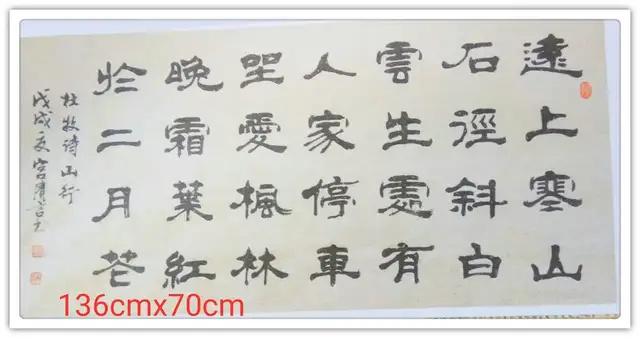 遠上寒山
石徑斜白
雲生處有
人家停車
坐愛楓林
晚霜葉紅
於二月花
杜牧诗山行
戊戌夏宫
136cmx70cm